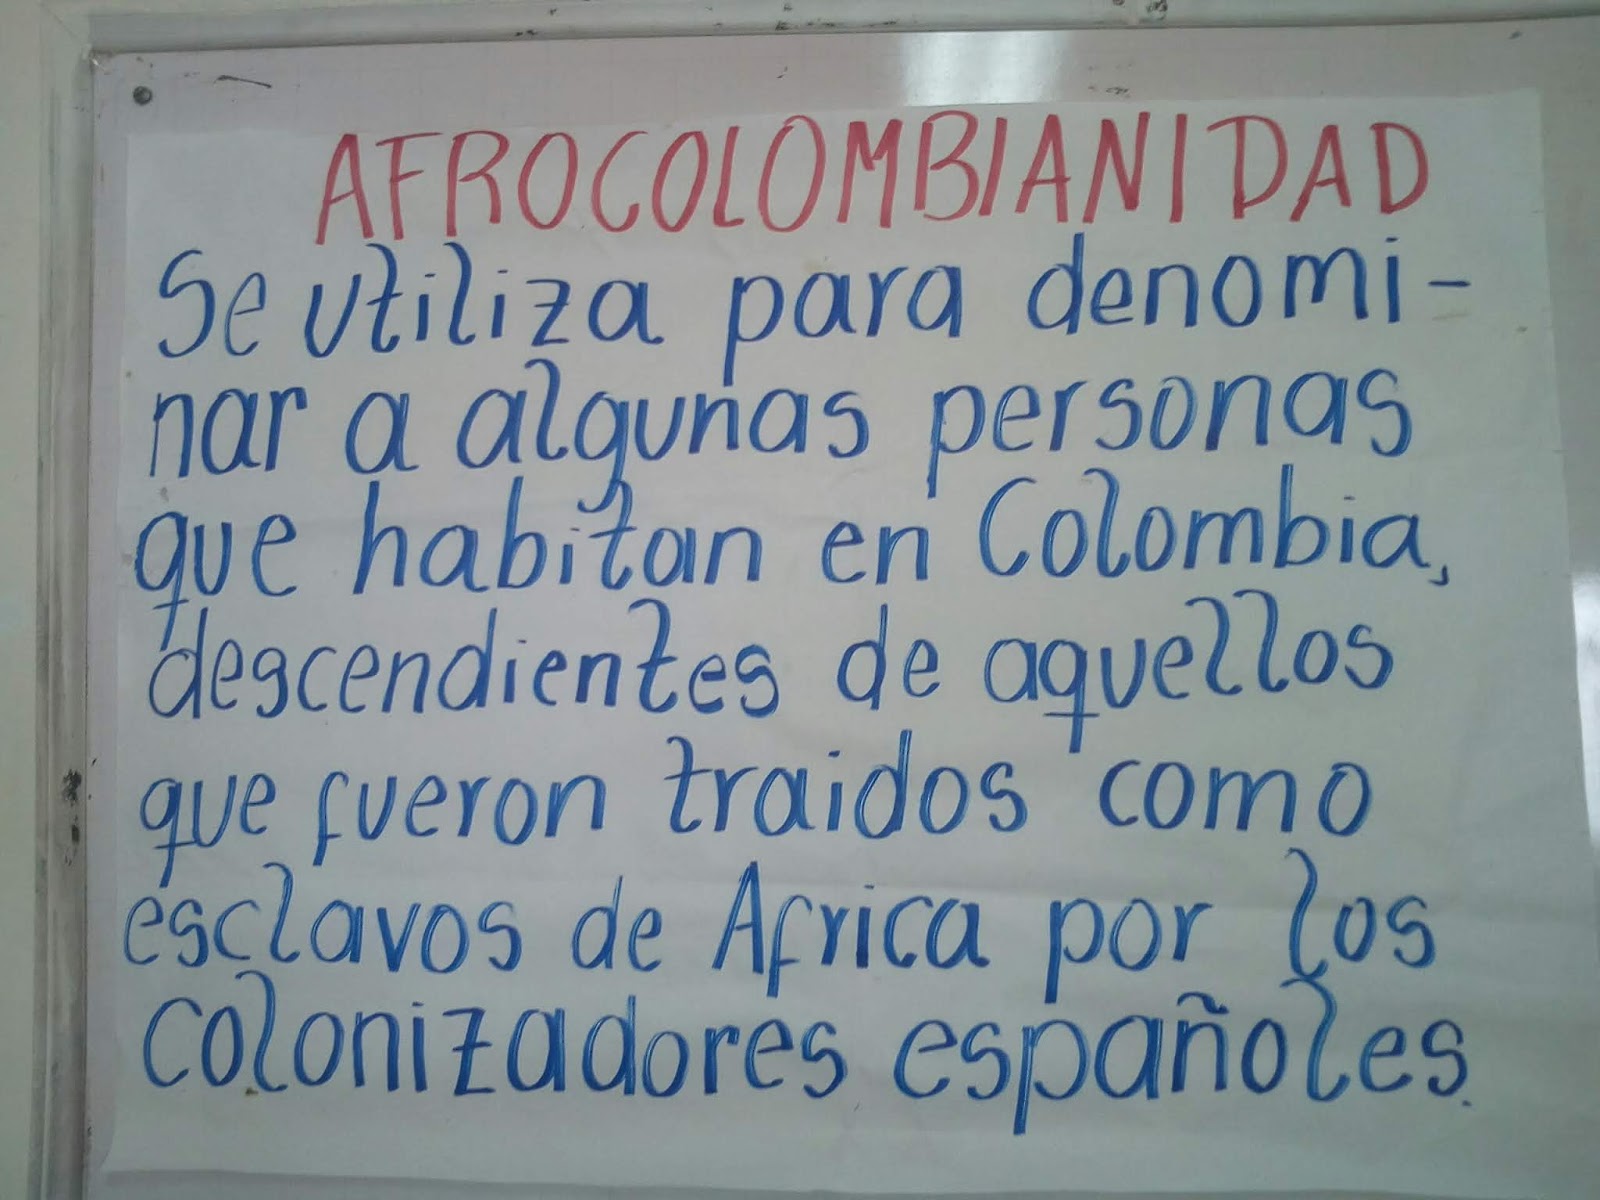 AFROCOLOMBIANIDAD
Se utiliza para denomi-
nar a algunas personas
que habitan en Colombia,
descendientes de aquellos
que fueron traidos como
esclavos de Africa por los
colonizadores españoles.